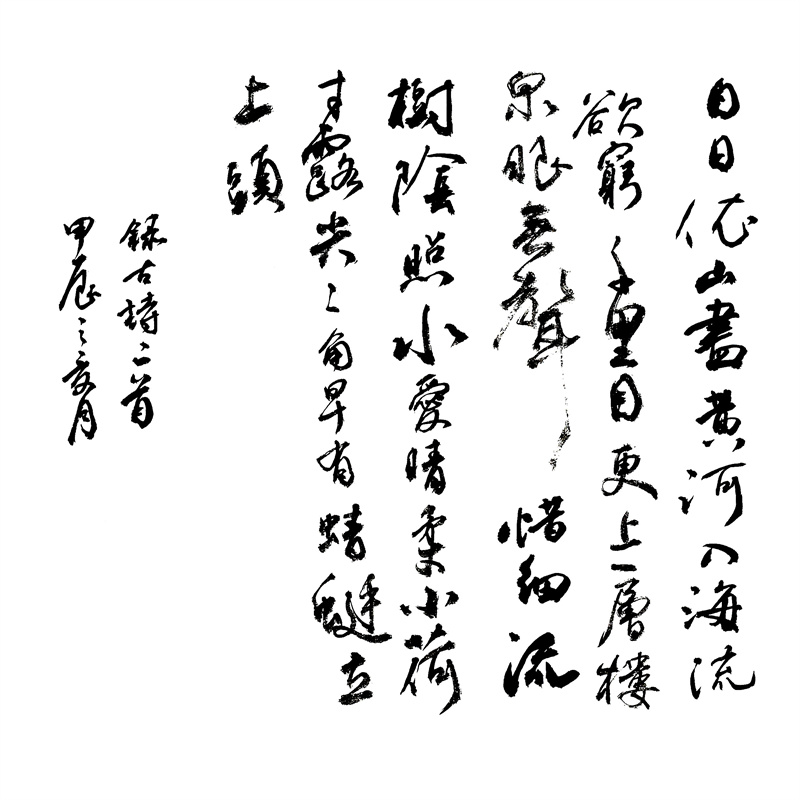 白日依山盡黃河入海流
欲窮千里目更上一層樓
泉眼無聲惜細流
樹陰照水愛晴柔小荷
才露尖〻角早有蜻蜓立
上頭
錄古詩二首
甲辰之夏月